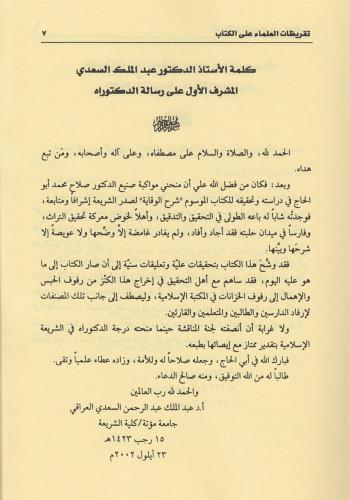 تقريظات العلماء على الكتاب ٧
كلمة الأستاذ الدكتور عبد الملك السعدي
المشرف الأول على رسالة الدكتوراه
الحمد لله، والصلاة والسلام على مصطفاه، وعلى آله وأصحابه، ومَن تبع
هداه.
وبعد: فكان من فضل الله علي أن منحني مواكبة صنيع الدكتور صلاح محمد أبو
الحاج في دراسته وتحقيقه للكتاب الموسوم "شرح الوقاية" لصدر الشريعة إشرافاً ومتابعة،
فوجدتُه شاباً له باعه الطولى في التحقيق والتدقيق، وأهلاً لخوض معركة تحقيق التراث،
وفارساً في ميدان حلبته فقد أجاد وأفاد، ولم يغادر غامضة إلاَّ وضَّحها ولا عويصةً إلاَّ
شرحَها وبيَّنها.
فقد وشَّحَ هذا الكتاب بتحقيقات عليّة وتعليقات سنيّة إلى أن صار الكتاب إلى ما
هو عليه اليوم، فقد ساهم مع أهل التحقيق في إخراج هذا الكنْز من رفوف الحبس
والإهمال إلى رفوف الخزانات في المكتبة الإسلامية، وليصطف إلى جانب تلك المصنفات
لإرفاد الدارسين والطالبين والمتعلمين والقارئين.
ولا غرابة أن أنصفته لجنة المناقشة حينما منحته درجة الدكتوراه في الشريعة
الإسلامية بتقدير ممتاز مع إيصائها بطبعه.
فبارك الله في أبي الحاج، وجعله صلاحاً له وللأمة، وزاده عطاء علمياً وتقى.
طالباً له من الله التوفيق، ومنه صالح الدعاء.
والحمد لله رب العالمين
أ.د عبد الملك عبد الرحمن السعدي العراقي
جامعة مؤتة/كلية الشريعة
١٥ رجب ١٤٢٣هـ
٢٣ أيلول ٢٠٠٢م